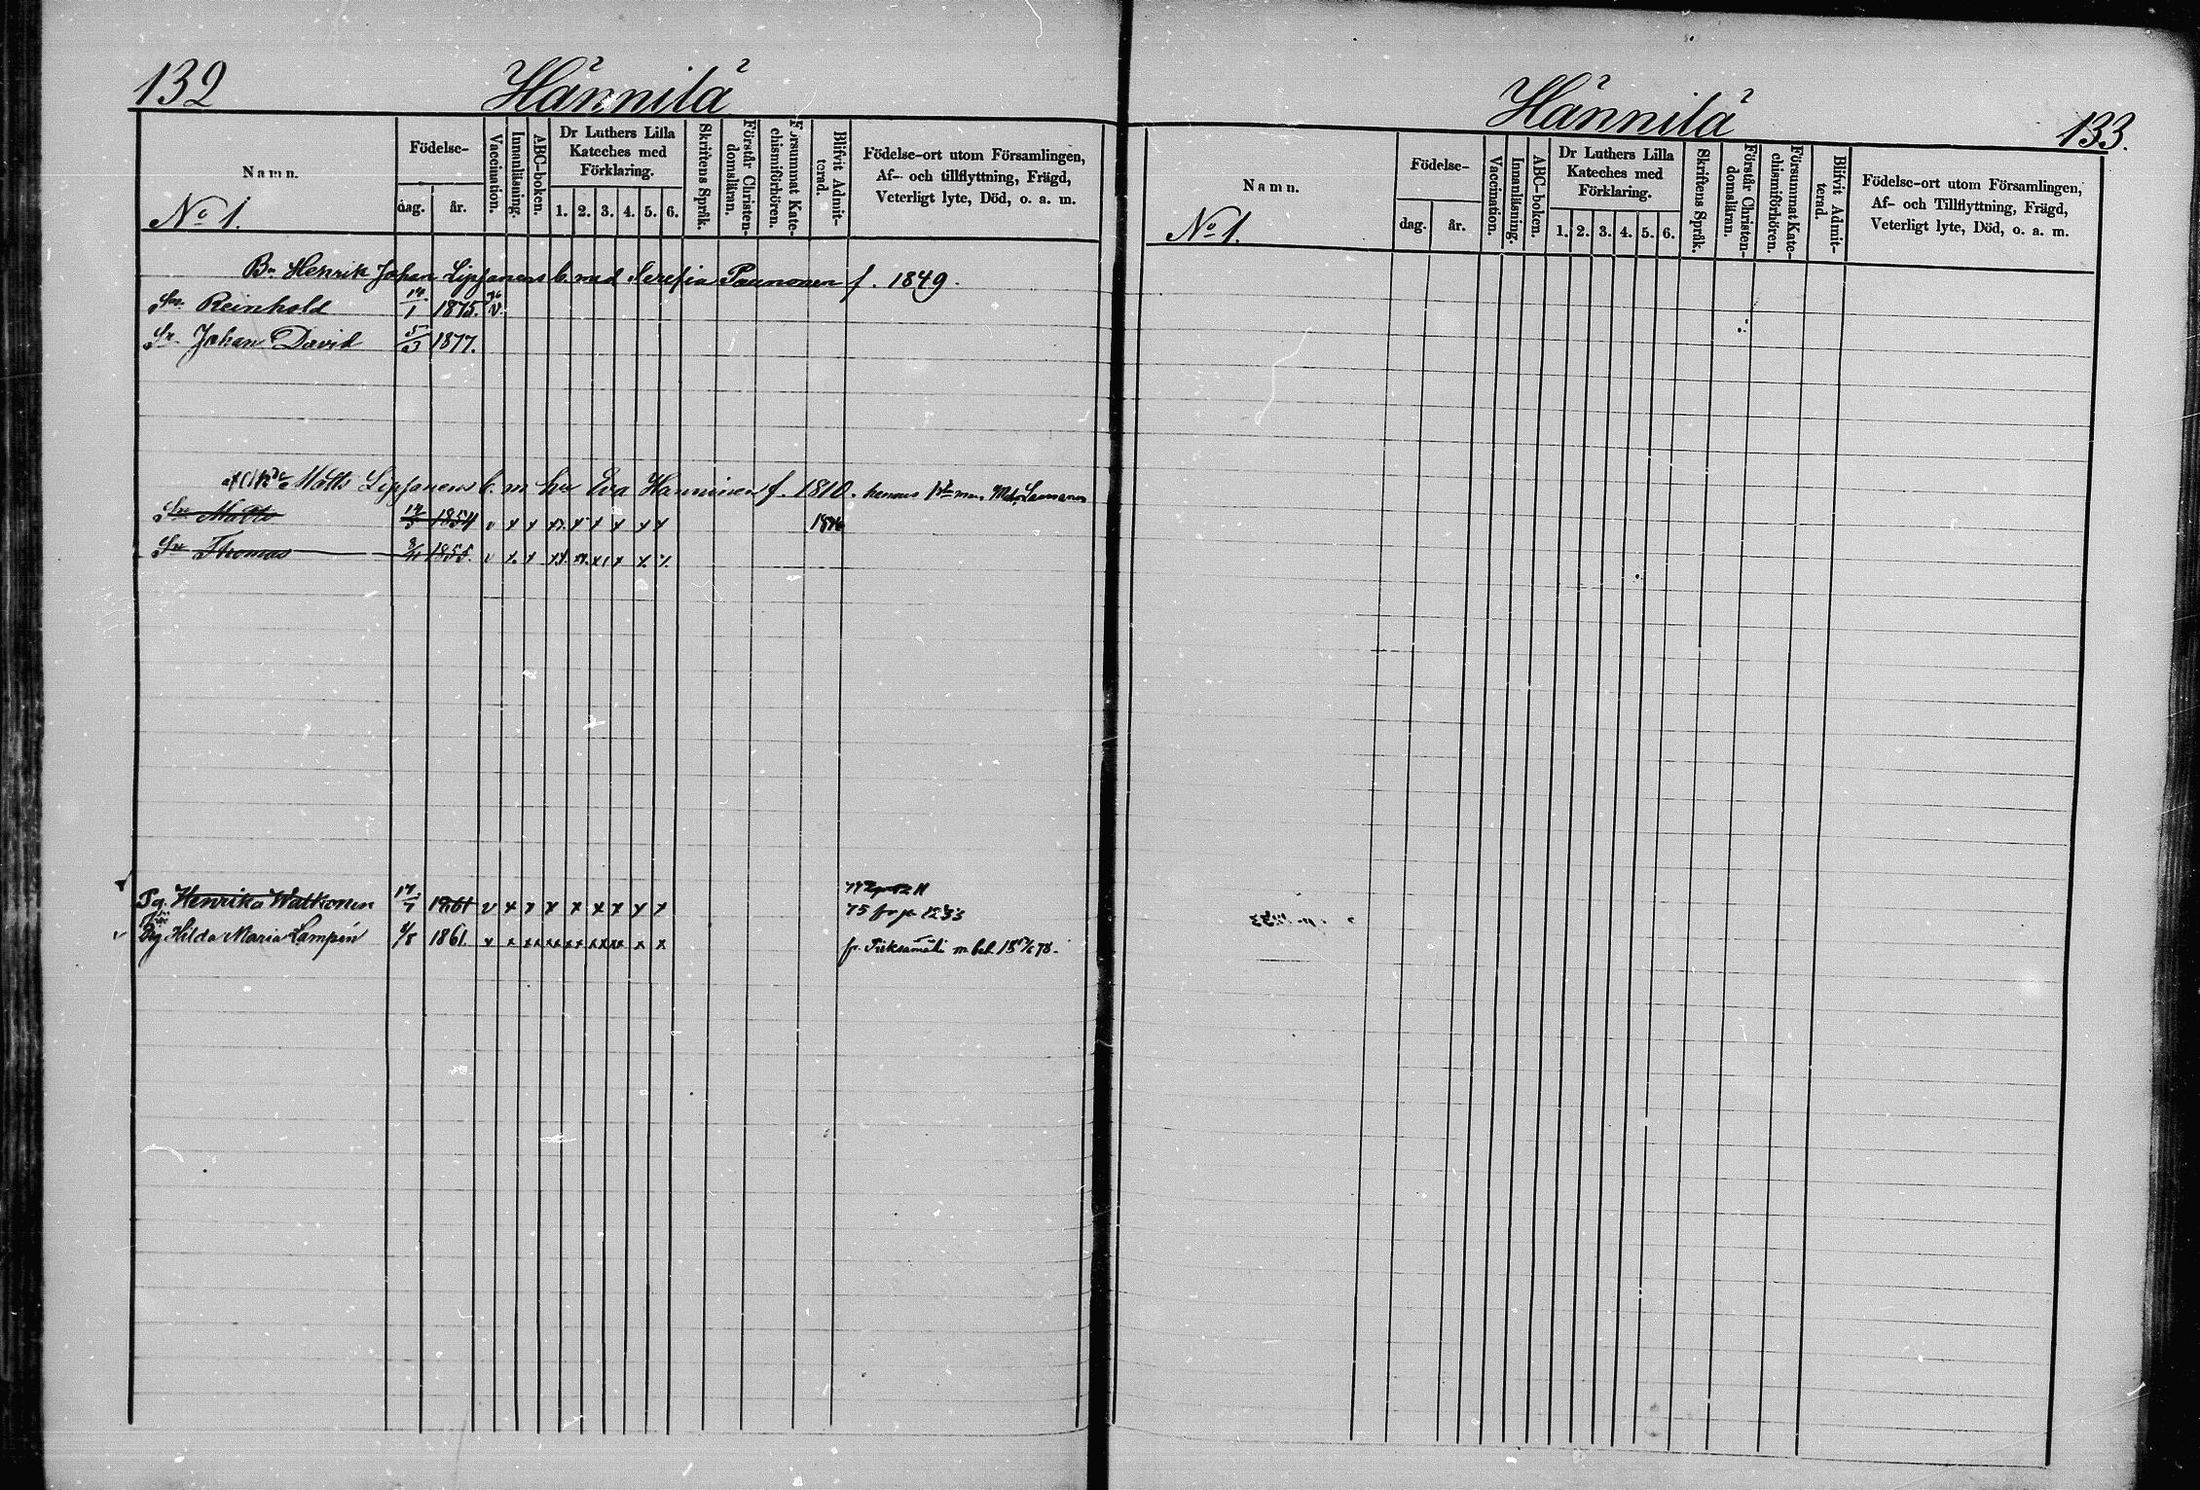 132 Hännilä
Namn.
No 1.
Födelse-
dag. år.
Vaccination.
Innanläsning.
ABC-boken.
Dr Luthers Lilla
Kateches med
Förklaring.
1. 2. 3. 4. 5. 6.
Skriftens Språk.
Förstår Christen-
domsläran.
Försummat Kate-
chismiförhören.
Blifvit Admit-
terad.
Födelse-ort utom Församlingen,
Af- och tillflyttning, Frägd,
Veterligt lyte, Död, o. a. m.
Bn Henrik Johan Lipsanens b. med Serefia Paunonen f. 1849.
Sn. Reinhold 14/1 1875. v.
Sn. Johan David 5/3 1877.
Matts Lipsanens b. m. hu Eva Hänninen f. 1810. hennes
Sn Matts 1854 v x x x x x x x 1876
Sn Thomas 1855. v x. x x x
Pg. Henrika Watkonen 17/7 1861 v x x x x x x x x
75 fr. p. 1233
Pig Hilda Maria Lampén 1861. x x xx xx xx xx xx x x fr. Pieksämäki m. bet.
Hännilä 133.
Namn.
No 1.
Födelse-
dag. år.
Vaccination.
Innanläsning.
ABC-boken.
Dr Luthers Lilla
Kateches med
Förklaring.
1. 2. 3. 4. 5. 6.
Skriftens Språk.
Förstår Christen-
domsläran.
Försummat Kate-
chismiförhören.
Blifvit Admit-
terad.
Födelse-ort utom Församlingen,
Af- och Tillflyttning, Frägd,
Veterligt lyte, Död, o. a. m.